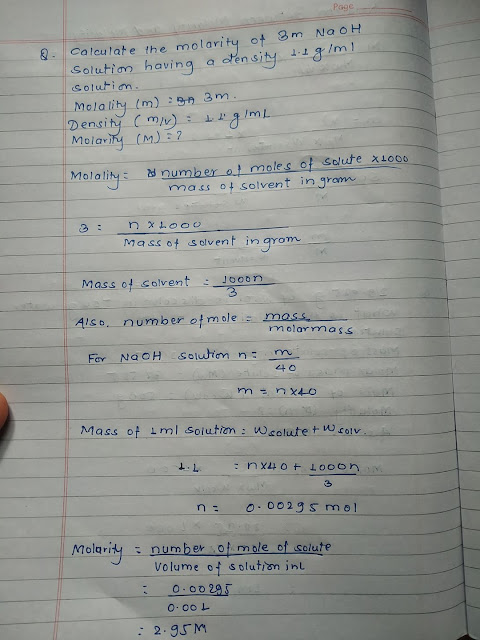 Page
Q. Calculate the molarity of 3m NaOH
solution having a density 1.1 g/ml
solution.
Molality (m) = 3m.
Density (m/v) = 1.1 g/mL
Molarity (M) = ?
Molality = number of moles of solute x1000
mass of solvent in gram
3 = n x 1000
Mass of solvent in gram
Mass of solvent = 1000n
3
Also, number of mole = mass
molarmass
For NaOH solution n = m
40
m = n x40
Mass of 1ml solution = Wsolute + Wsolv.
1.1 = nx40 + 1000n
3
n = 0.00295 mol
Molarity = number of mole of solute
Volume of solution in L
= 0.00295
0.001
= 2.95 M